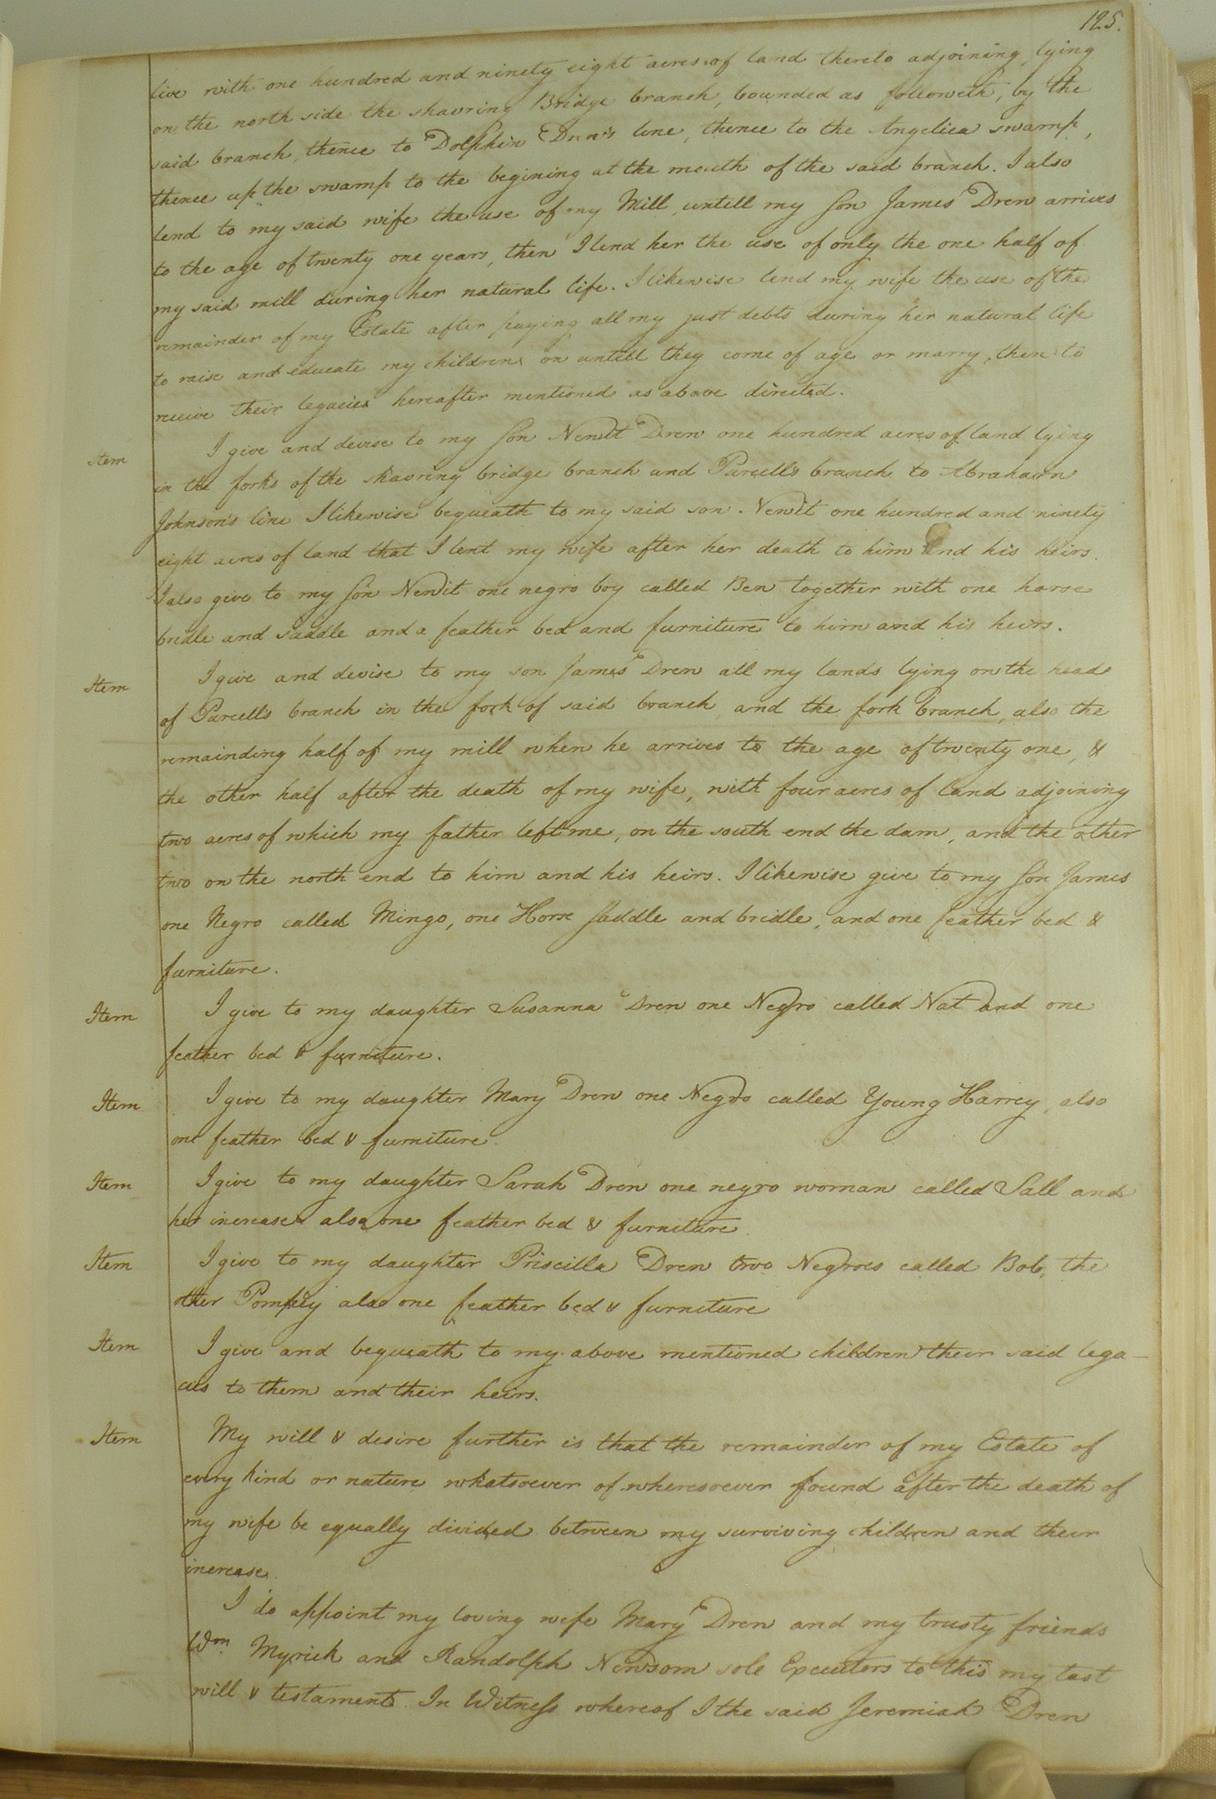 125.
live with one hundred and ninety eight acres of land thereto adjoining lying
on the north side the shavring Bridge branch, bounded as followeth, by the
said branch, thence to Dolphin Drew's line, thence to the Angelica swamp,
thence up the swamp to the begining at the mouth of the said branch. I also
lend to my said wife the use of my Mill, untell my son James Drew arrives
to the age of twenty one years, then I lend her the use of only the one half of
my said mill during her natural life. I likewise lend my wife the use of the
remainder of my Estate after paying all my just debts during her natural life
to raise and educate my children, or untell they come of age or marry, then to
receive their legacies hereafter mentioned as above directed.
Item I give and devise to my son Newit Drew one hundred acres of land lying
in the forks of the shavring bridge branch and Parcell's branch to Abraham
Johnson's line I likewise bequeath to my said son Newit one hundred and ninety
eight acres of land that I lent my wife after her death to him and his heirs.
I also give to my son Newit one negro boy called Ben together with one horse
bridle and saddle and a feather bed and furniture to him and his heirs.
Item I give and devise to my son James Drew all my lands lying on the head
of Parcells branch in the fork of said branch, and the fork branch, also the
remainding half of my mill when he arrives to the age of twenty one, &
the other half after the death of my wife, with four acres of land adjoining
two acres of which my father left me, on the south end the dam, and the other
two on the north end to him and his heirs. I likewise give to my son James
one Negro called Mingo, one Horse saddle and bridle, and one feather bed &
furniture.
Item I give to my daughter Susanna Drew one Negro called Nat and one
feather bed & furniture.
Item I give to my daughter Mary Drew one Negro called Young Harrey, also
one feather bed & furniture.
Item I give to my daughter Sarah Drew one negro woman called Sall and
her increase also one feather bed & furniture.
Item I give to my daughter Priscilla Drew two Negroes called Bob, the
other Pompey also one feather bed & furniture
Item I give and bequeath to my above mentioned children their said lega-
cies to them and their heirs.
Item My will & desire further is that the remainder of my Estate of
every kind or nature whatsoever of wheresoever found after the death of
my wife be equally divided between my surviving children and their
increase.
I do appoint my loving wife Mary Drew and my trusty friends
Wm. Myrick and Randolph Newsom sole Executors to this my last
will & testament. In Witness whereof I the said Jeremiah Drew